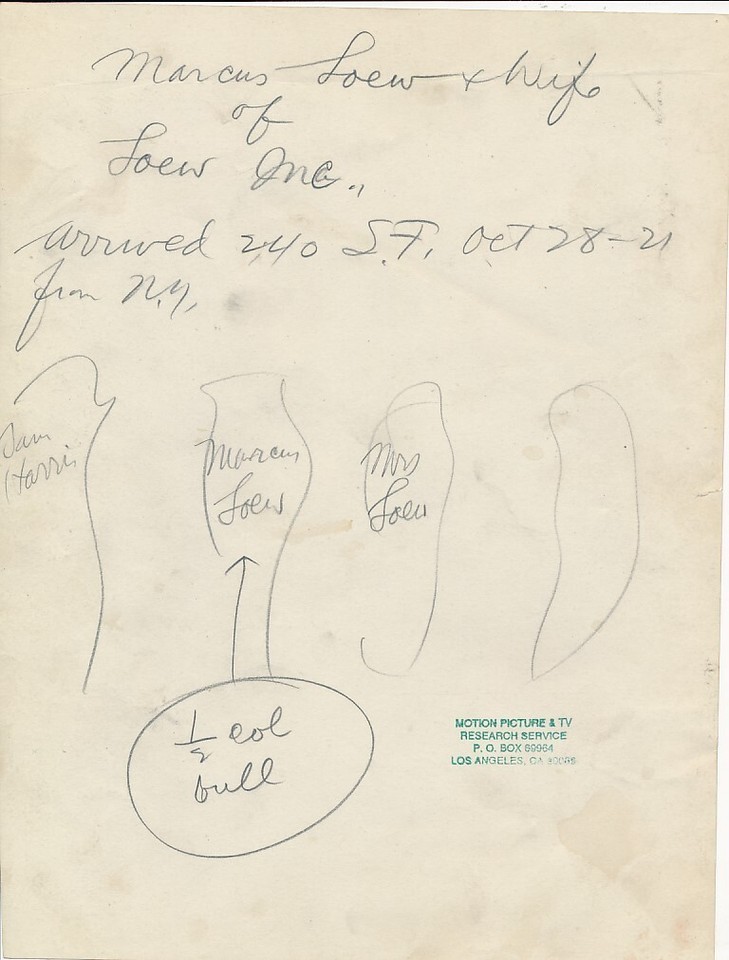 Marcus Loew & Wife
of
Loew Inc.,
arrived 240 S.F. Oct 28-21
from N.Y.
Sam
Harris
Marcus
Loew
Mrs
Loew
1/2 col
bull
MOTION PICTURE & TV
RESEARCH SERVICE
P. O. BOX 69964
LOS ANGELES, CA